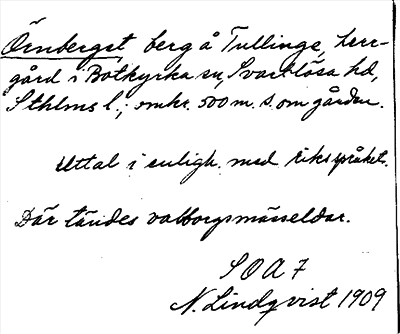 Örnberget, berg å Tullinge, herr-
gård i Botkyrka sn, Svartlösa hd,
Sthlms l.; omkr. 500 m. s. om gården.
Uttal i enligh. med riksspråket.
Där tändes valborgsmässeldar.
SOA 7
N. Lindqvist 1909